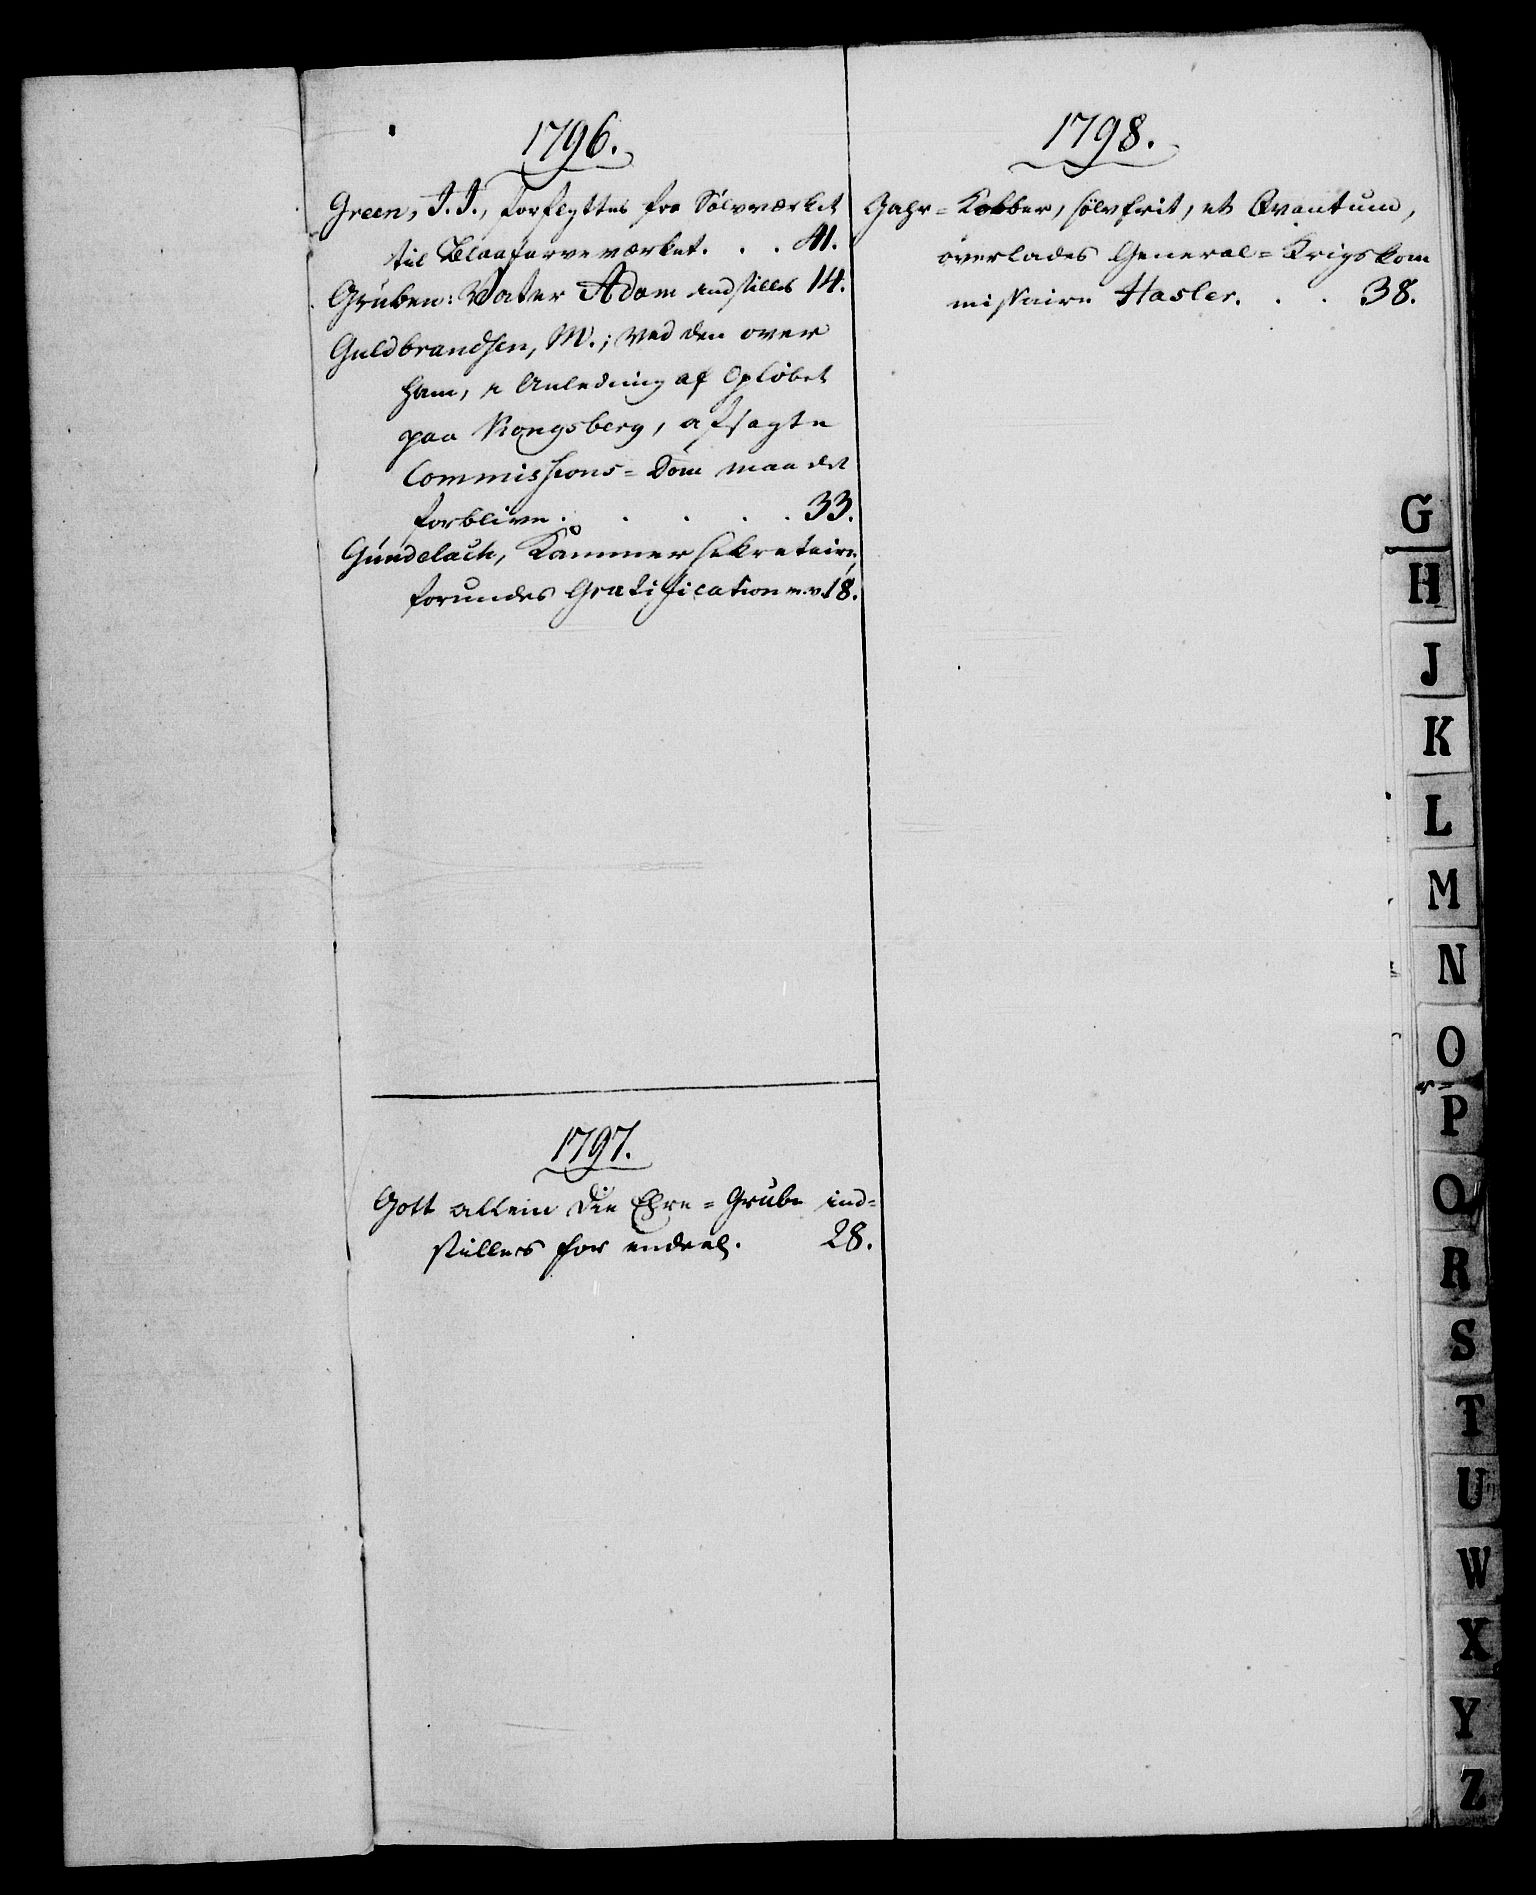 1796.
Green, I. I., forflyttes fra Sölvværket
til Blaafarveværket. . . 41.
Gruben: Vater Adam indstilles 14.
Guldbrandsen, M.; ved den over
ham, i Anledning af Opløbet
paa Kongsberg, afsagte
Commissions=Dom maa det
forblive . . . . . 33.
Gundelach, Kammersekretaire,
forundes Gratification 18.
1797.
Gott allein die Ehre=Grube ind=
stilles for endeel. 28.
1798.
Gahr=Kobber, sölvfrit, et Qvantum,
overlades General=Krigskom
missaire Hasler. . . 38.
G
H
J
K
L
M
N
O
P
Q
R
S
T
U
W
X
Y
Z